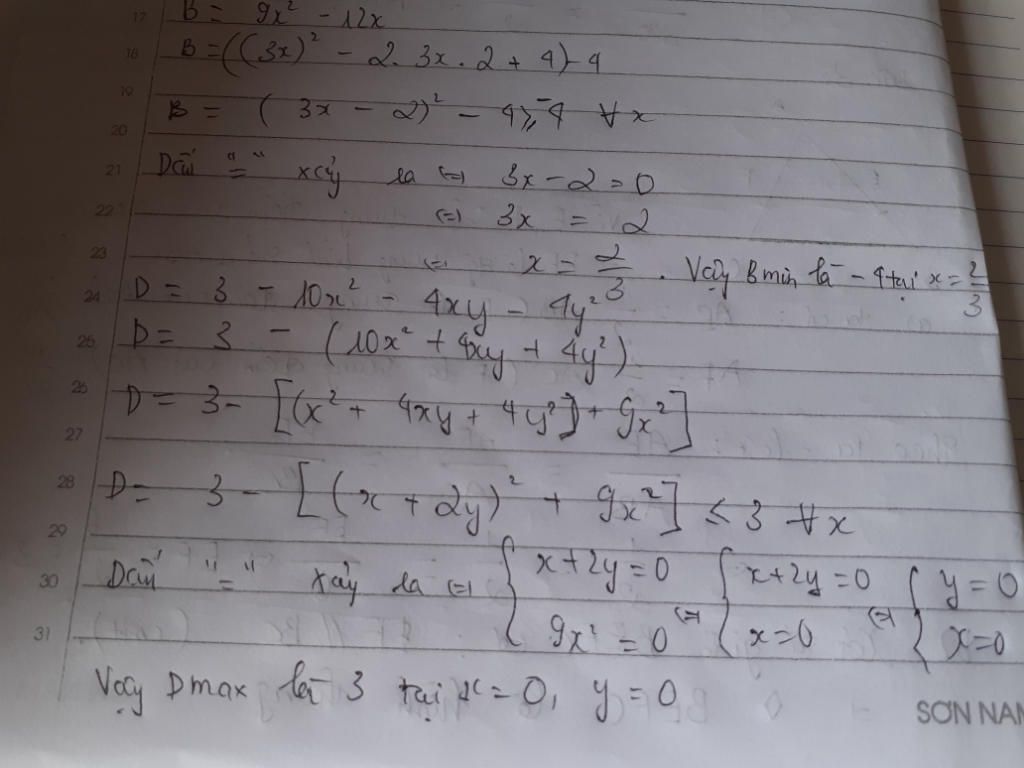 17 B = 9x² - 12x
18 B = ((3x)² - 2. 3x . 2 + 4) - 4
19 B = ( 3x - 2)² - 4 ⩾ -4 ∀x
20
21 Dấu "=" xảy ra <=> 3x - 2 = 0
22 <=> 3x = 2
23 <=> x = 2/3 . Vậy Bmin là -4 tại x = 2/3
24 D = 3 - 10x² - 4xy - 4y²
25 D = 3 - (10x² + 4xy + 4y²)
26 D = 3 - [(x² + 4xy + 4y²) + 9x²]
27
28 D = 3 - [(x + 2y)² + 9x²] ≤ 3 ∀x
29
30 Dấu "=" xảy ra <=> { x + 2y = 0 <=> { x + 2y = 0 <=> { y = 0
31 9x² = 0 x = 0 x = 0
Vậy Dmax là 3 tại x = 0, y = 0
SƠN NAM